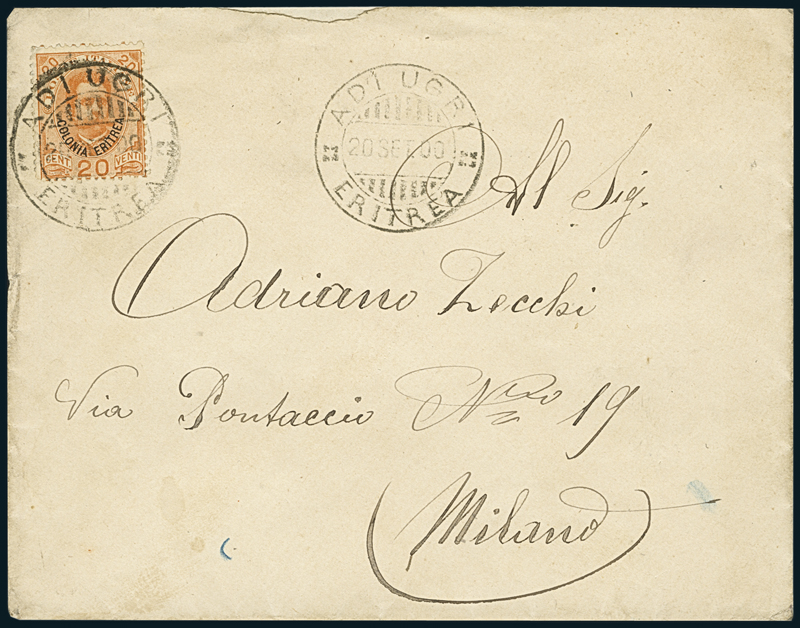 20 20
COLONIA ERITREA
CENT. 20 VENTI
ADI UGRI
ERITREA
ADI UGRI
20 SET. 00
ERITREA
Al Sig.
Adriano Zecchi
Via Pontaccio Nro 19
Milano